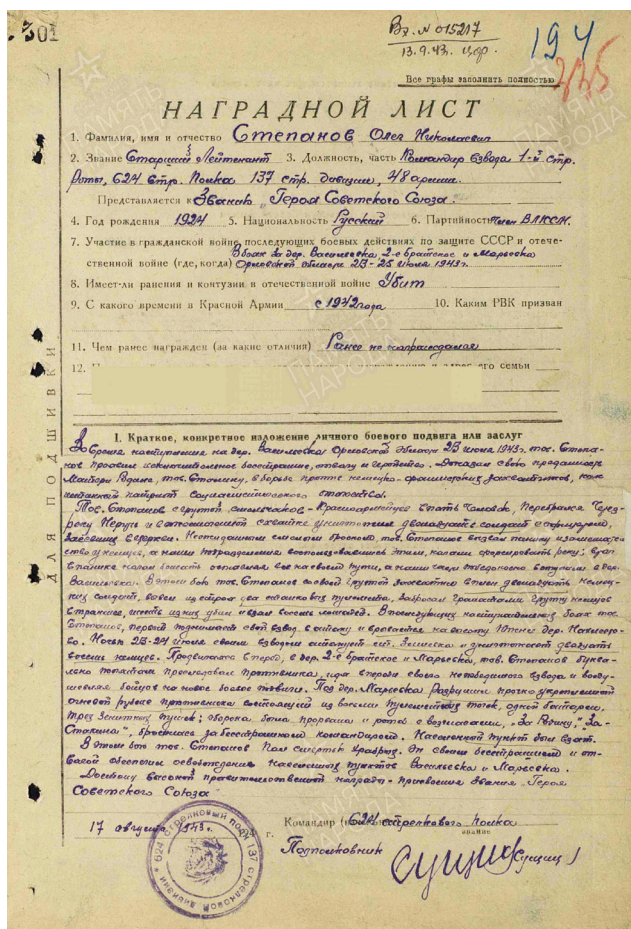 301
Вх. N 015217
13.9.43.
194
Все графы заполнить полностью
НАГРАДНОЙ ЛИСТ
1. Фамилия, имя и отчество Степанов Олег Николаевич
2. Звание Старший Лейтенант 3. Должность, часть Командир взвода 1-й стр.
Роты, 624 стр. Полка 137 стр. дивизии, 48 армии.
Представляется к Званию „Героя Советского Союза."
4. Год рождения 1924 5. Национальность Русский 6. Партийность член ВЛКСМ.
7. Участие в гражданской войне, последующих боевых действиях по защите СССР и отече-
ственной войне (где, когда) В боях за дер. Васильевка 2-е Братское и Марьевка
Орловской области 23-25 июля 1943 г.
8. Имеет-ли ранения и контузии в отечественной войне Убит
9. С какого времени в Красной Армии с 1942 года 10. Каким РВК призван
11. Чем ранее награжден (за какие отличия) Ранее не награждался
12.
ДЛЯ ПОДШИВКИ
I. Краткое, конкретное изложение личного боевого подвига или заслуг
Во время наступления на дер. Васильевка Орловской области 23 июля 1943 г. тов. Степа-
нов проявил исключительное бесстрашие, отвагу и геройство. Доказал свою преданность
Матери Родине, тов. Сталину, в борьбе против немецко-фашистских захватчиков, как
истинный патриот социалистического отечества.
Тов. Степанов с группой смельчаков - Красноармейцев в пять человек, перебрался через
реку Неручь и в рукопашной схватке уничтожил двенадцать солдат с офицером,
засевших в траншеи. Неожиданным смелым броском, тов. Степанов вызвал панику и замешатель-
ство у немцев, а наши подразделения воспользовавшись этим, начали форсировать реку; враг
в панике начал бежать оставляя все на своем пути, а наши части вступили в дер.
Васильевка. В этом бою тов. Степанов со своей группой захватил в плен двенадцать немец-
ких солдат, вывел из строя два станковых пулемета, забросал гранатами группу немцев
в траншее, шесть из них убил и взял восемь лошадей. В последующих наступательных боях тов.
Степанов, первый поднимает свой взвод в атаку и врывается на высоту дер.
Ночью 23-24 июля своим взводом атакует и уничтожает двадцать
восемь немцев. Продвигаясь вперед, в дер. 2-е Братское и Марьевка, тов. Степанов буква-
льно по пятам преследовал противника, идя впереди своего взвода и вооду-
шевляя бойцов на новые боевые подвиги. Под дер. Марьевка Разрушил прочно укрепленный
огневой рубеж противника состоящий из восьми пулеметных точек, одной батареи,
трех зенитных пушек; оборона была прорвана и рота с возгласами, „За Родину", „За
Сталина", бросилась за бесстрашным командиром. Населенный пункт был взят.
В этом бою тов. Степанов Пал смертью храбрых. Он своим бесстрашием и от-
вагой обеспечил освобождение населенных пунктов Васильевка и Марьевка.
Достоин высокой правительственной награды - присвоение звания „Герой
Советского Союза"
17 августа 1943 г.
Командир 624 стрелкового Полка
звание
Подполковник
Сущиц
624 СТРЕЛКОВЫЙ ПОЛК 137 СТРЕЛКОВОЙ ДИВИЗИИ
ПАМЯТЬ НАРОДА